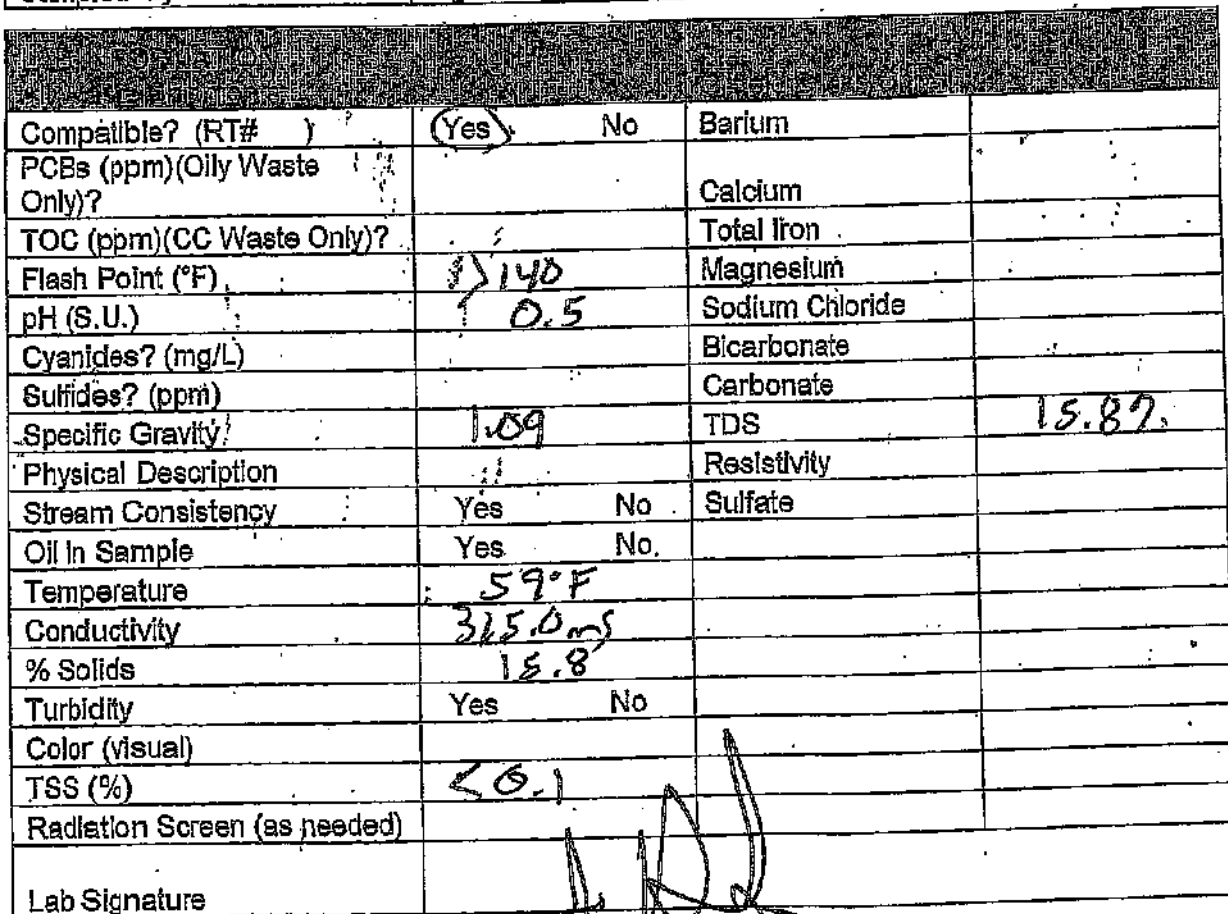 Compatible? (RT# ) Yes No Barium
PCBs (ppm)(Oily Waste
Only)? Calcium
TOC (ppm)(CC Waste Only)? Total Iron
Flash Point (°F) >140 Magnesium
pH (S.U.) 0.5 Sodium Chloride
Cyanides? (mg/L) Bicarbonate
Sulfides? (ppm) Carbonate
Specific Gravity 1.09 TDS 15.8%
Physical Description Resistivity
Stream Consistency Yes No Sulfate
Oil in Sample Yes No
Temperature 59°F
Conductivity 315.0 mS
% Solids 15.8
Turbidity Yes No
Color (visual)
TSS (%) <0.1
Radiation Screen (as needed)
Lab Signature